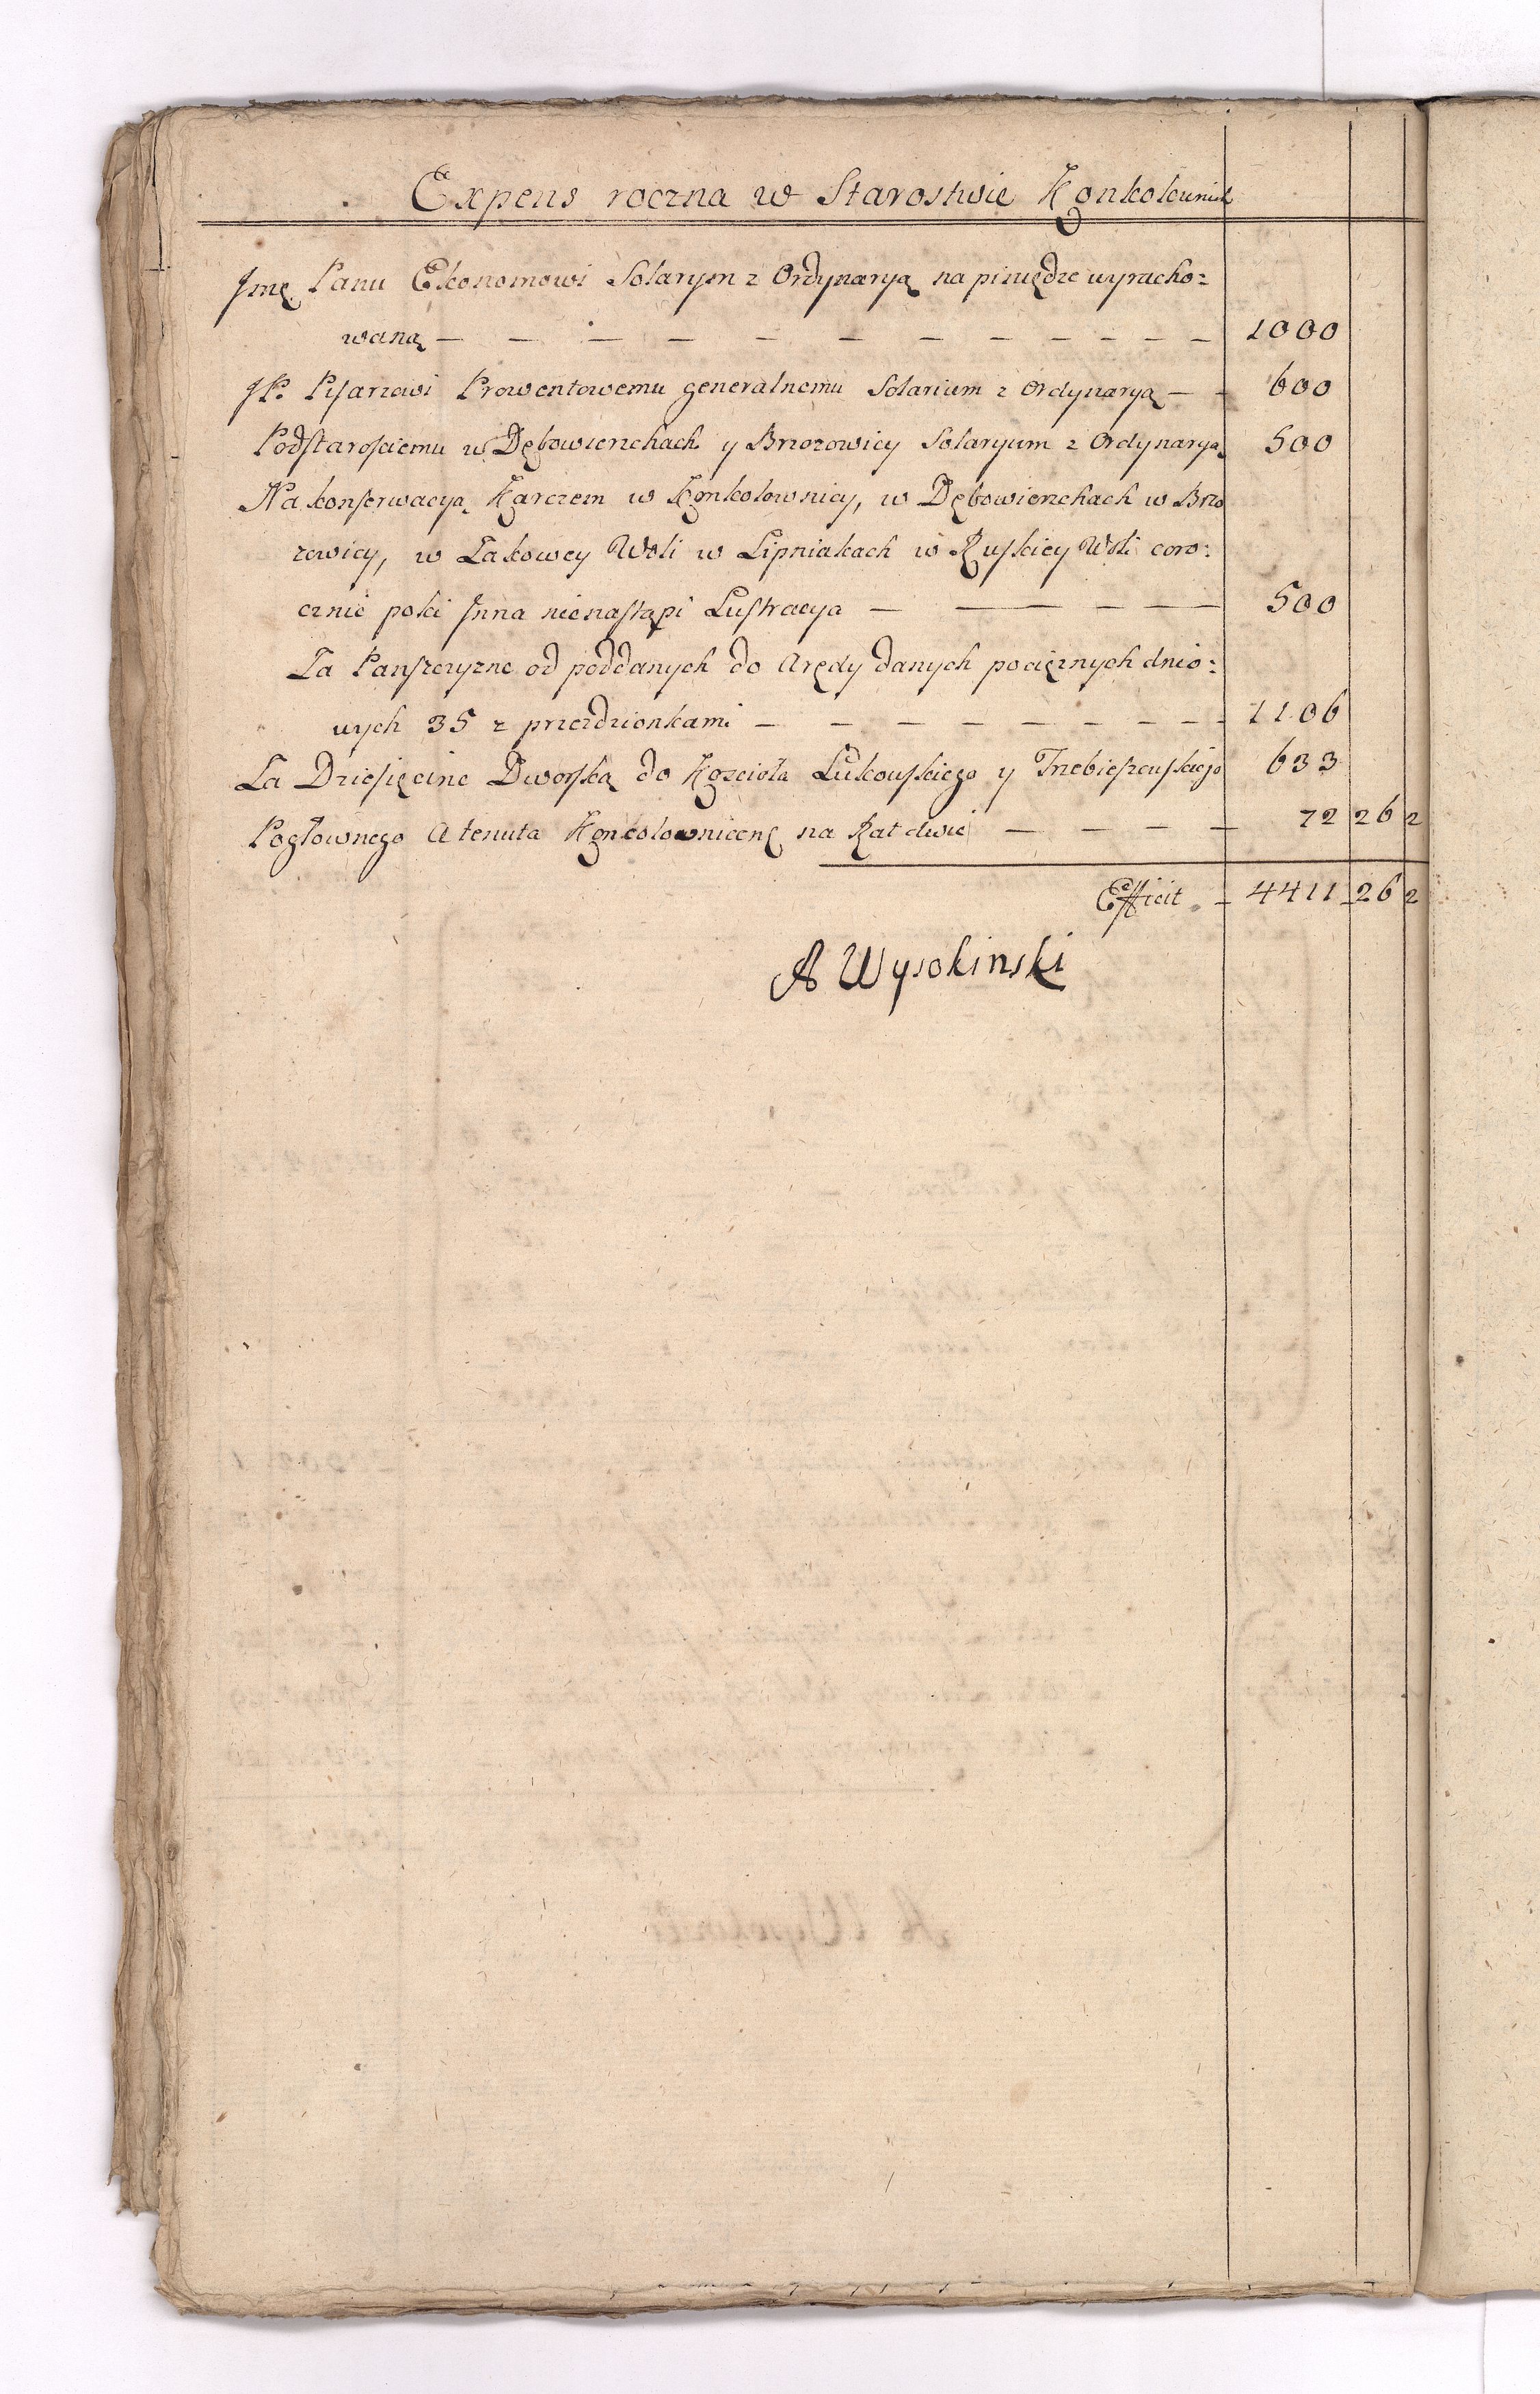 Expens roczna w Starostwie Konkolewnick
Jmę Panu Ekonomowi Solarym z Ordynaryą na pieniędze wyracho:
waną — — — — — — — — — — — 1000
JP. Pisarzowi Prowentowemu generalnemu Solarium z Ordynaryą — — 600
Podstarosciemu w Dębowierzchach y Brzozowicy Solaryum z Ordynaryą 500
Na konserwacyą Karczem w Konkolownicy, w Dębowierzchach w Brzo
zowicy, w Zakowey Woli w Lipniakach w Ruskiey Woli coro:
cznie poki Jnna nienastąpi Lustracya — — — — — 500
Za Panszczyzne od poddanych do Arędy danych pocięznych dnio:
wych 35 z przezdzionkami — — — — — — — — 1106
Za Dziesięcine Dworską do Kościoła Łukowskiego y Trzebieszowskiego 633
Pogłownego A tenuta Konkolowniceną na Rat dwie — — — — 72 26 2
Efficit — 4411 26 2
A Wysokinski